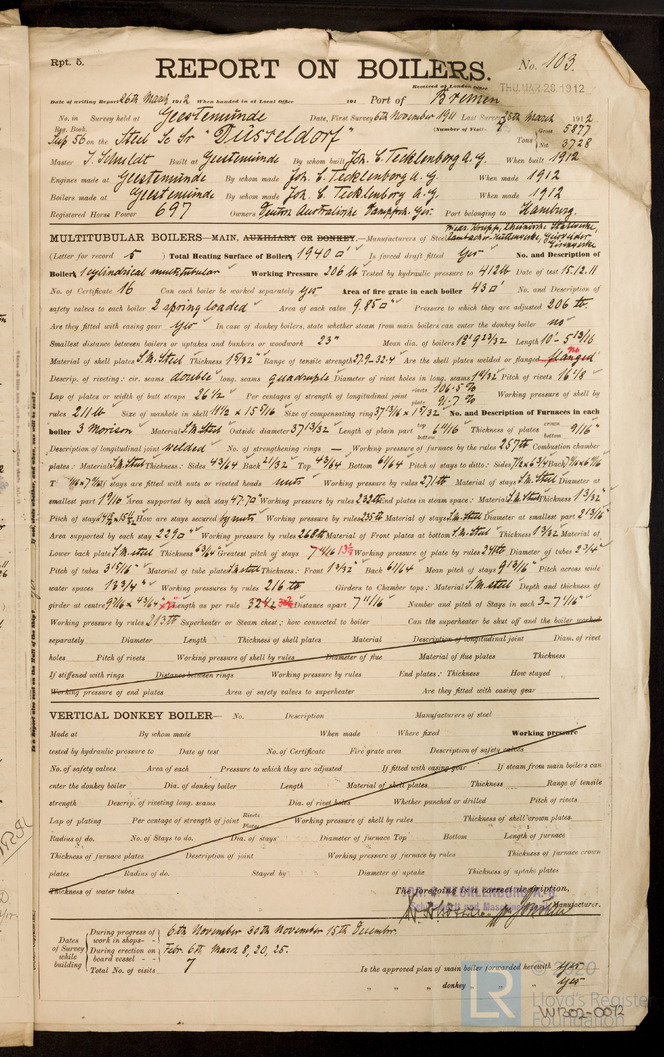 Rpt. 5.
REPORT ON BOILERS.
No. 103.
Received at London Office THU. MAR 28 1912
Date of writing Report 26th March 1912 When handed in at Local Office 191 Port of Bremen
No. in Reg. Book. Survey held at Geestemünde Date, First Survey 6th November 1911 Last Survey 25th March 1912
Sup 58 on the Steel Sc Sr "Düsseldorf" (Number of Visits 7) Tons Gross 5877 Net 3728
Master J. Schuldt Built at Geestemünde By whom built Joh. C. Tecklenborg A.G. When built 1912
Engines made at Geestemünde By whom made Joh. C. Tecklenborg A.G. When made 1912
Boilers made at Geestemünde By whom made Joh. C. Tecklenborg A.G. When made 1912
Registered Horse Power 697 Owners Deutsch Australische Dampfsch. Ges. Port belonging to Hamburg.
MULTITUBULAR BOILERS—MAIN, AUXILIARY OR DONKEY.—Manufacturers of Steel
(Letter for record S) Total Heating Surface of Boilers 1940 □' Is forced draft fitted Yes No. and Description of
Boilers 1 cylindrical multitubular Working Pressure 206 lb Tested by hydraulic pressure to 412 lb Date of test 15.12.11
No. of Certificate 16 Can each boiler be worked separately Yes Area of fire grate in each boiler 43 □' No. and Description of
safety valves to each boiler 2 spring loaded Area of each valve 9.85 □" Pressure to which they are adjusted 206 lb.
Are they fitted with easing gear Yes In case of donkey boilers, state whether steam from main boilers can enter the donkey boiler no
Smallest distance between boilers or uptakes and bunkers or woodwork 23" Mean dia. of boilers 12' 9 23/32 Length 10'-5 13/16
Material of shell plates S.M. Steel Thickness 1 5/32" Range of tensile strength 27.9-32.4 Are the shell plates welded or flanged no
Descrip. of riveting: cir. seams double long. seams quadruple Diameter of rivet holes in long. seams 1 9/32 Pitch of rivets 16 1/8
Lap of plates or width of butt straps 26 1/2 Per centages of strength of longitudinal joint rivets 106.5 % plate 91.7 % Working pressure of shell by
rules 211 lb Size of manhole in shell 11 1/2 x 15 5/16 Size of compensating ring 37 13/16 x 1 5/32 No. and Description of Furnaces in each
boiler 3 Morison Material S.M. Steel Outside diameter 37 13/32 Length of plain part top bottom Thickness of plates crown bottom 9/16"
Description of longitudinal joint welded No. of strengthening rings — Working pressure of furnace by the rules 257 lb Combustion chamber
plates: Material S.M. steel Thickness: Sides 43/64 Back 21/32 Top 43/64 Bottom Pitch of stays to ditto: Sides 7 1/2 x 6 3/4 Back
Top If stays are fitted with nuts or riveted heads nuts Working pressure by rules 271 lb Material of stays S.M. Steel Diameter at
smallest part 1 9/10 Area supported by each stay 47.7 □" Working pressure by rules 232 lb End plates in steam space: Material S.M. Steel Thickness 1 3/32
Pitch of stays How are stays secured by nuts Working pressure by rules 235 lb Material of stays S.M. Steel Diameter at smallest part 2 13/16
Area supported by each stay 229 □" Working pressure by rules 266 lb Material of Front plates at bottom S.M. Steel Thickness 1 3/32 Material of
Lower back plate S.M. steel Thickness 63/64 Greatest pitch of stays Working pressure of plate by rules 241 lb Diameter of tubes 2 3/4
Pitch of tubes 3 15/16 Material of tube plates S.M. steel Thickness: Front 1 3/32 Back Mean pitch of stays 9 13/16 Pitch across wide
water spaces 13 3/4" Working pressures by rules 216 lb Girders to Chamber tops: Material S.M. steel Depth and thickness of
girder at centre Length as per rule Distance apart 7 11/16 Number and pitch of Stays in each 3-7 1/16"
Working pressure by rules 213 lb Superheater or Steam chest; how connected to boiler Can the superheater be shut off and the boiler worked
separately Diameter Length Thickness of shell plates Material Description of longitudinal joint Diam. of rivet
holes Pitch of rivets Working pressure of shell by rules Diameter of flue Material of flue plates Thickness
If stiffened with rings Distance between rings Working pressure by rules End plates: Thickness How stayed
Working pressure of end plates Area of safety valves to superheater Are they fitted with easing gear
VERTICAL DONKEY BOILER— No. Description Manufacturers of steel
Made at By whom made When made Where fixed Working pressure
tested by hydraulic pressure to Date of test No. of Certificate Fire grate area Description of safety valves
No. of safety valves Area of each Pressure to which they are adjusted If fitted with easing gear If steam from main boilers can
enter the donkey boiler Dia. of donkey boiler Length Material of shell plates Thickness Range of tensile
strength Descrip. of riveting long. seams Dia. of rivet holes Whether punched or drilled Pitch of rivets
Lap of plating Per centage of strength of joint Rivets Plates Working pressure of shell by rules Thickness of shell crown plates
Radius of do. No. of Stays to do. Dia. of stays Diameter of furnace Top Bottom Length of furnace
Thickness of furnace plates Description of joint Working pressure of furnace by rules Thickness of furnace crown
plates Radius of do. Stayed by Diameter of uptake Thickness of uptake plates
Thickness of water tubes The foregoing is a correct description,
Manufacturer.
Dates of Survey while building During progress of work in shops - - 6th November 30th November 15th December.
During erection on board vessel - - Febr. 6th March 8, 20, 25.
Total No. of visits 7
Is the approved plan of main boiler forwarded herewith Yes
" " " donkey " " " Yes
LR
© 2020
Lloyd's Register
Foundation
W1302-0072